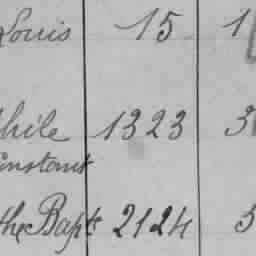 Louis 15 1
hile 1323 3
instant
the Bapt 2124 5